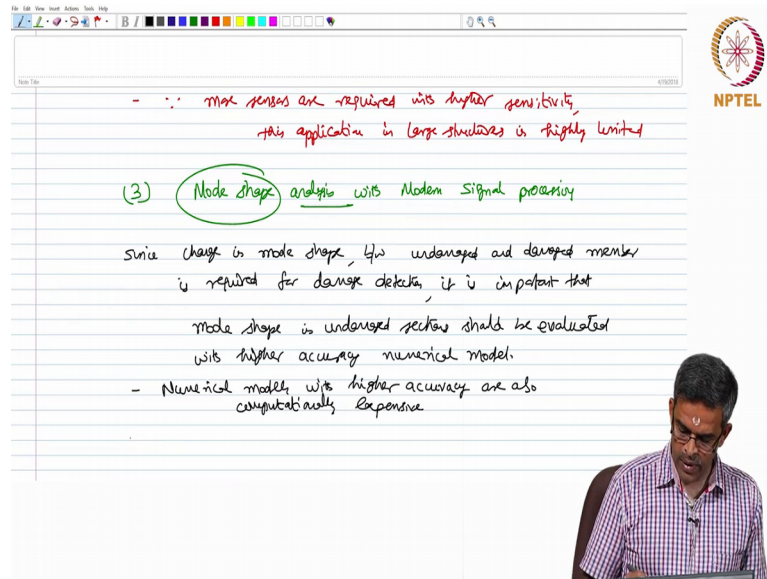 File Edit View Insert Actions Tools Help
B I
Note Title
4/19/2018
NPTEL
- ∵ more sensors are required with higher sensitivity,
this application in large structures is highly limited
(3) Mode shape analysis with Modern signal processing
Since change in mode shape, b/w undamaged and damaged member
is required for damage detection, it is important that
mode shape in undamaged section should be evaluated
with higher accuracy numerical model.
- Numerical models with higher accuracy are also
computationally expensive